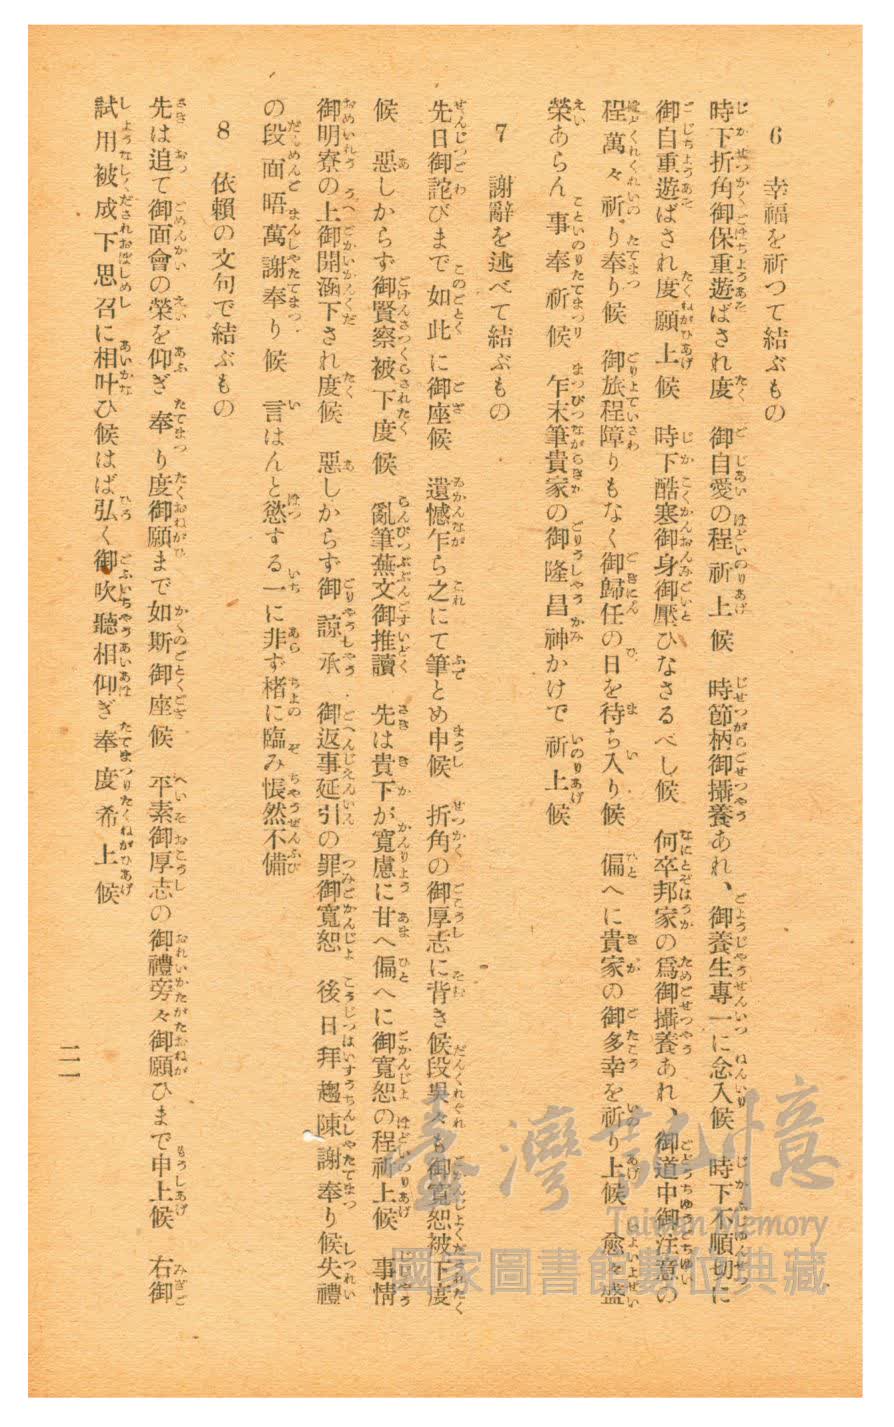 6 幸福を祈つて結ぶもの
時下折角御保重遊ばされ度 御自愛の程祈上候 時節柄御攝養あれ、御養生專一に念入候 時下不順切に
御自重遊ばされ度願上候 時下酷寒御身御壓ひなさるべし候 何卒邦家の爲御攝養あれ、御道中御注意の
程萬々祈り奉り候 御旅程障りもなく御歸任の日を待ち入り候 偏へに貴家の御多幸を祈り上候 愈々盛
榮あらん事奉祈候 乍末筆貴家の御隆昌神かけで祈上候
7 謝辭を述べて結ぶもの
先日御詫びまで如此に御座候 遺憾乍ら之にて筆とめ申候 折角の御厚志に背き候段呉々も御寬恕被下度
候 惡しからず御賢察被下度候 亂筆蕪文御推讀 先は貴下が寬慮に甘へ偏へに御寬恕の程祈上候 事情
御明寮の上御開涵下され度候 惡しからず御諒承 御返事延引の罪御寬恕 後日拜趨陳謝奉り候失禮
の段面晤萬謝奉り候 言はんと慾する一に非ず楮に臨み悵然不備
8 依賴の文句で結ぶもの
先は追て御面會の榮を仰ぎ奉り度御願まで如斯御座候 平素御厚志の御禮旁々御願ひまで申上候 右御
試用被成下思召に相叶ひ候はば弘く御吹聽相仰ぎ奉度希上候
二一
臺灣記憶
Taiwan Memory
國家圖書館數位典藏